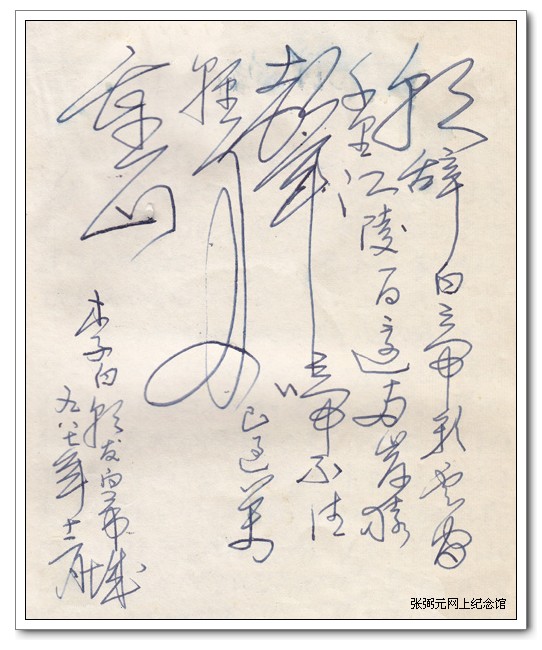 朝辞白帝彩云间
千里江陵一日还两岸猿
声啼不住
轻舟已过万
重山
李白朝发白帝城
九八七年十二月
张弼元网上纪念馆